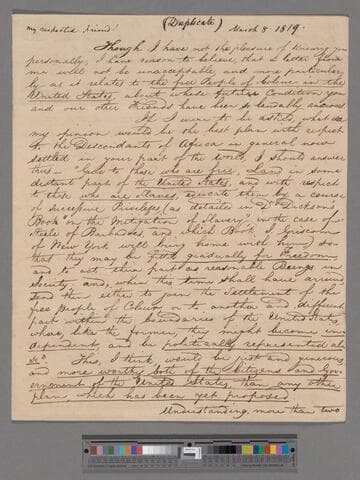 (Duplicate)
My respected friend
March 8 1819.
Though I have not the pleasure of knowing you
personally, I have reason to believe, that a letter from
me will not be unacceptable, and more particular-
ly as it relates to the free People of Colour in the
United States, about whose future Condition you
and our other Friends have been so laudably anxious.
If I were to be asked, what was
my opinion would be the best plan with respect
to the Descendants of Africa in general now
settled in your part of the World, I should answer
this - "Give to those who are free, Land in some
distant part of the United States, and with respect
to those who are Slaves, educate them by a course
of successive Privileges, (as detailed in Dr. Dickson's
Book "on the Mitigation of Slavery", in the case of
Steele of Barbadoes, and which Book J. Griscom
of New York will bring home with him) so
that they may be fitted gradually for Freedom
and to act their part as reasonable Beings in
Society; and, when this time shall have arrived
send them either to join the Settlement of the
free People of Colour or to another and different
part within the boundaries of the United States,
where, like the former, they might become in-
dependent, and be politically represented al-
so".
This, I think, would be just and generous
and more worthy both of the Citizens and Gov-
ernment of the United States, than any other
plan, which has been yet proposed.
Understanding, more than two